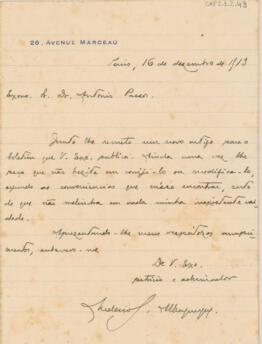 28, AVENUE MARCEAU
Paris, 16 de dezembro de 1913
Exmo. Sr. Dr. António
Junto lhe remeto um novo artigo para o
boletim que V. Exa. publica. Ainda uma vez lhe
peço que não hesite em ou modifica-lo,
segundo as conveniencias que nisso encontrar, certo
de que não melindra em nada minha
Apresentando-lhe meus respeitosos cumpri-
mentos, subscrevo-me
De V. Exa.
patricio e admirador